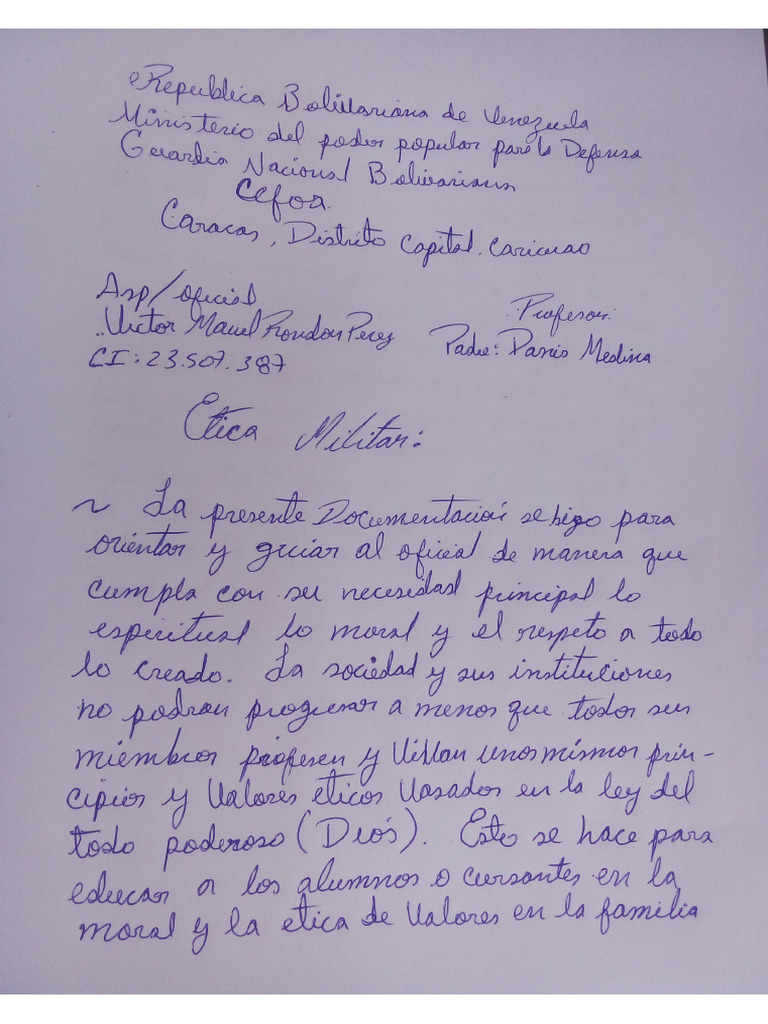 Republica Bolivariana de Venezuela
Ministerio del poder popular para la Defensa
Guardia Nacional Bolivariana
Cefoa.
Caracas, Distrito Capital. Caricuao
Asp/oficial
Profesor:
Victor Manuel Rondon Perez
Padre: Danis Medina
CI: 23.507.387
Etica Militar:
~ La presente Documentación se hizo para
orientar y guiar al oficial de manera que
cumpla con su necesidad principal lo
espiritual lo moral y el respeto a todo
lo creado. La sociedad y sus instituciones
no podran progresar a menos que todos sus
miembros profesen y vivan unos mismos prin-
cipios y Valores eticos Vasados en la ley del
todo poderoso (Diós). Esto se hace para
educar a los alumnos o cursantes en la
moral y la etica de Valores en la familia